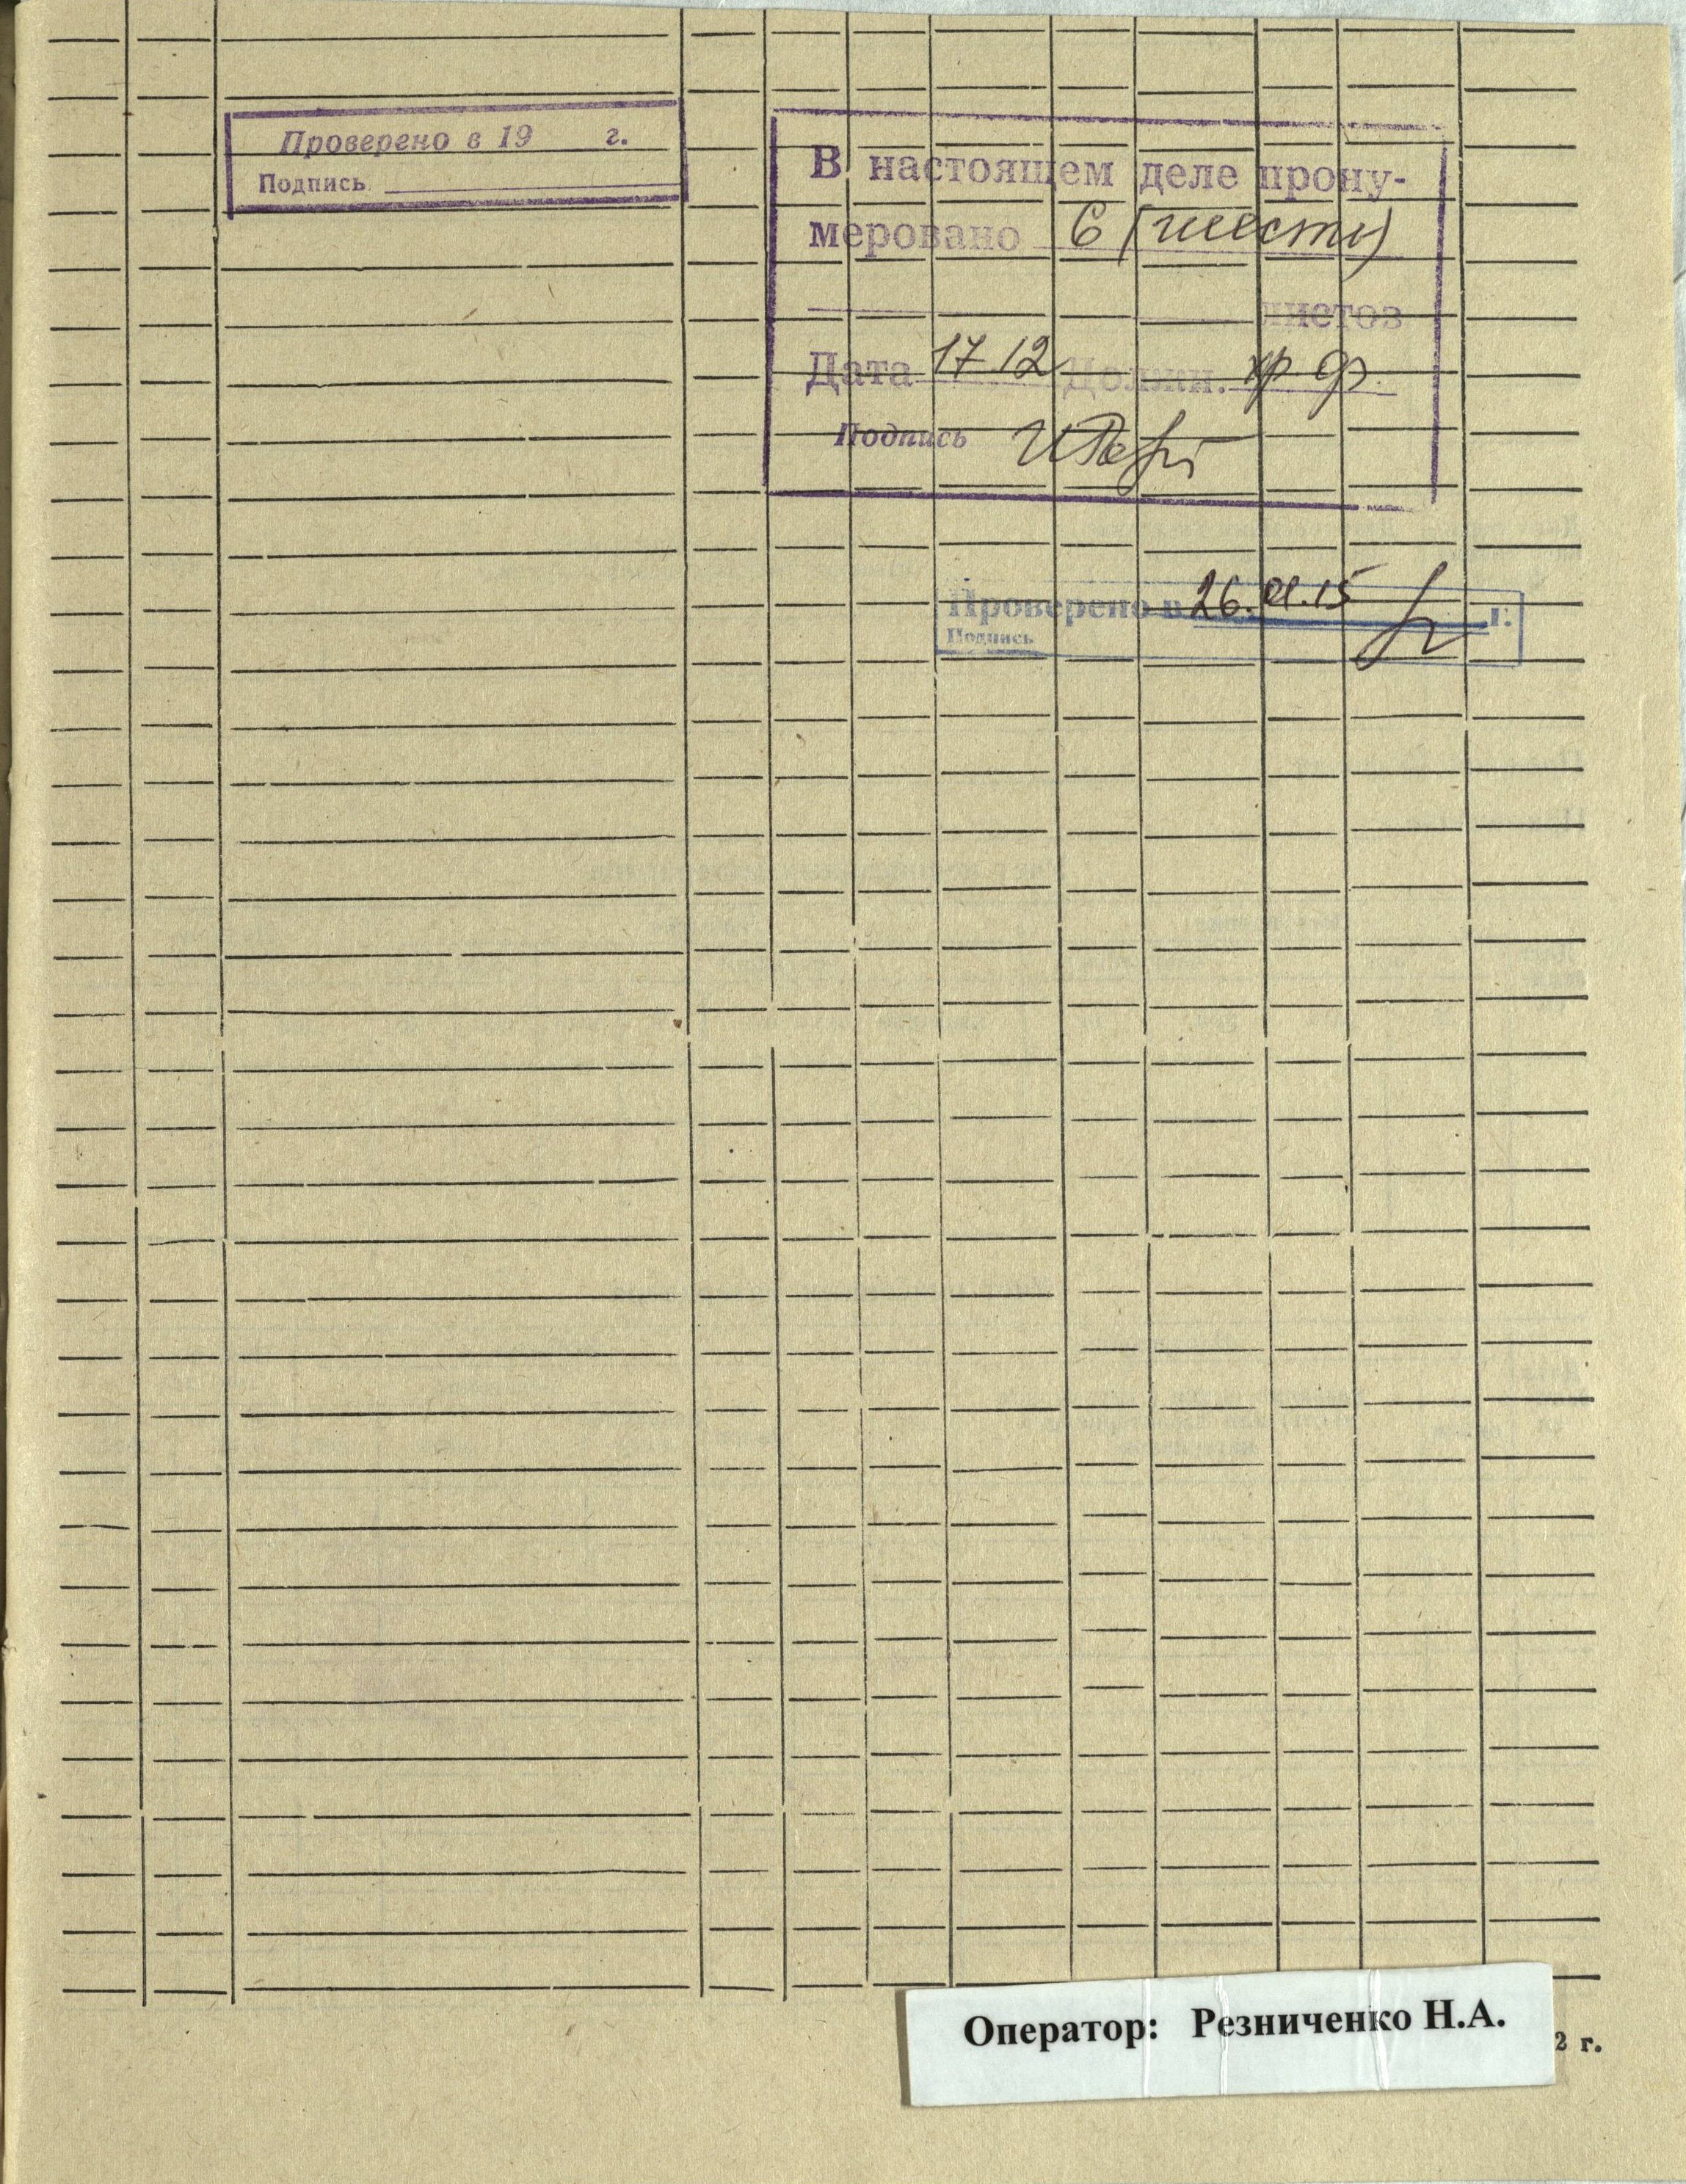 Проверено в 19 г.
Подпись
В настоящем деле прону-
меровано 6 (шесть)
листов
Дата 17.12 Должн. хр. ф.
Подпись
Проверено в 26.01.15 г.
Подпись
Оператор: Резниченко Н.А.
2 г.